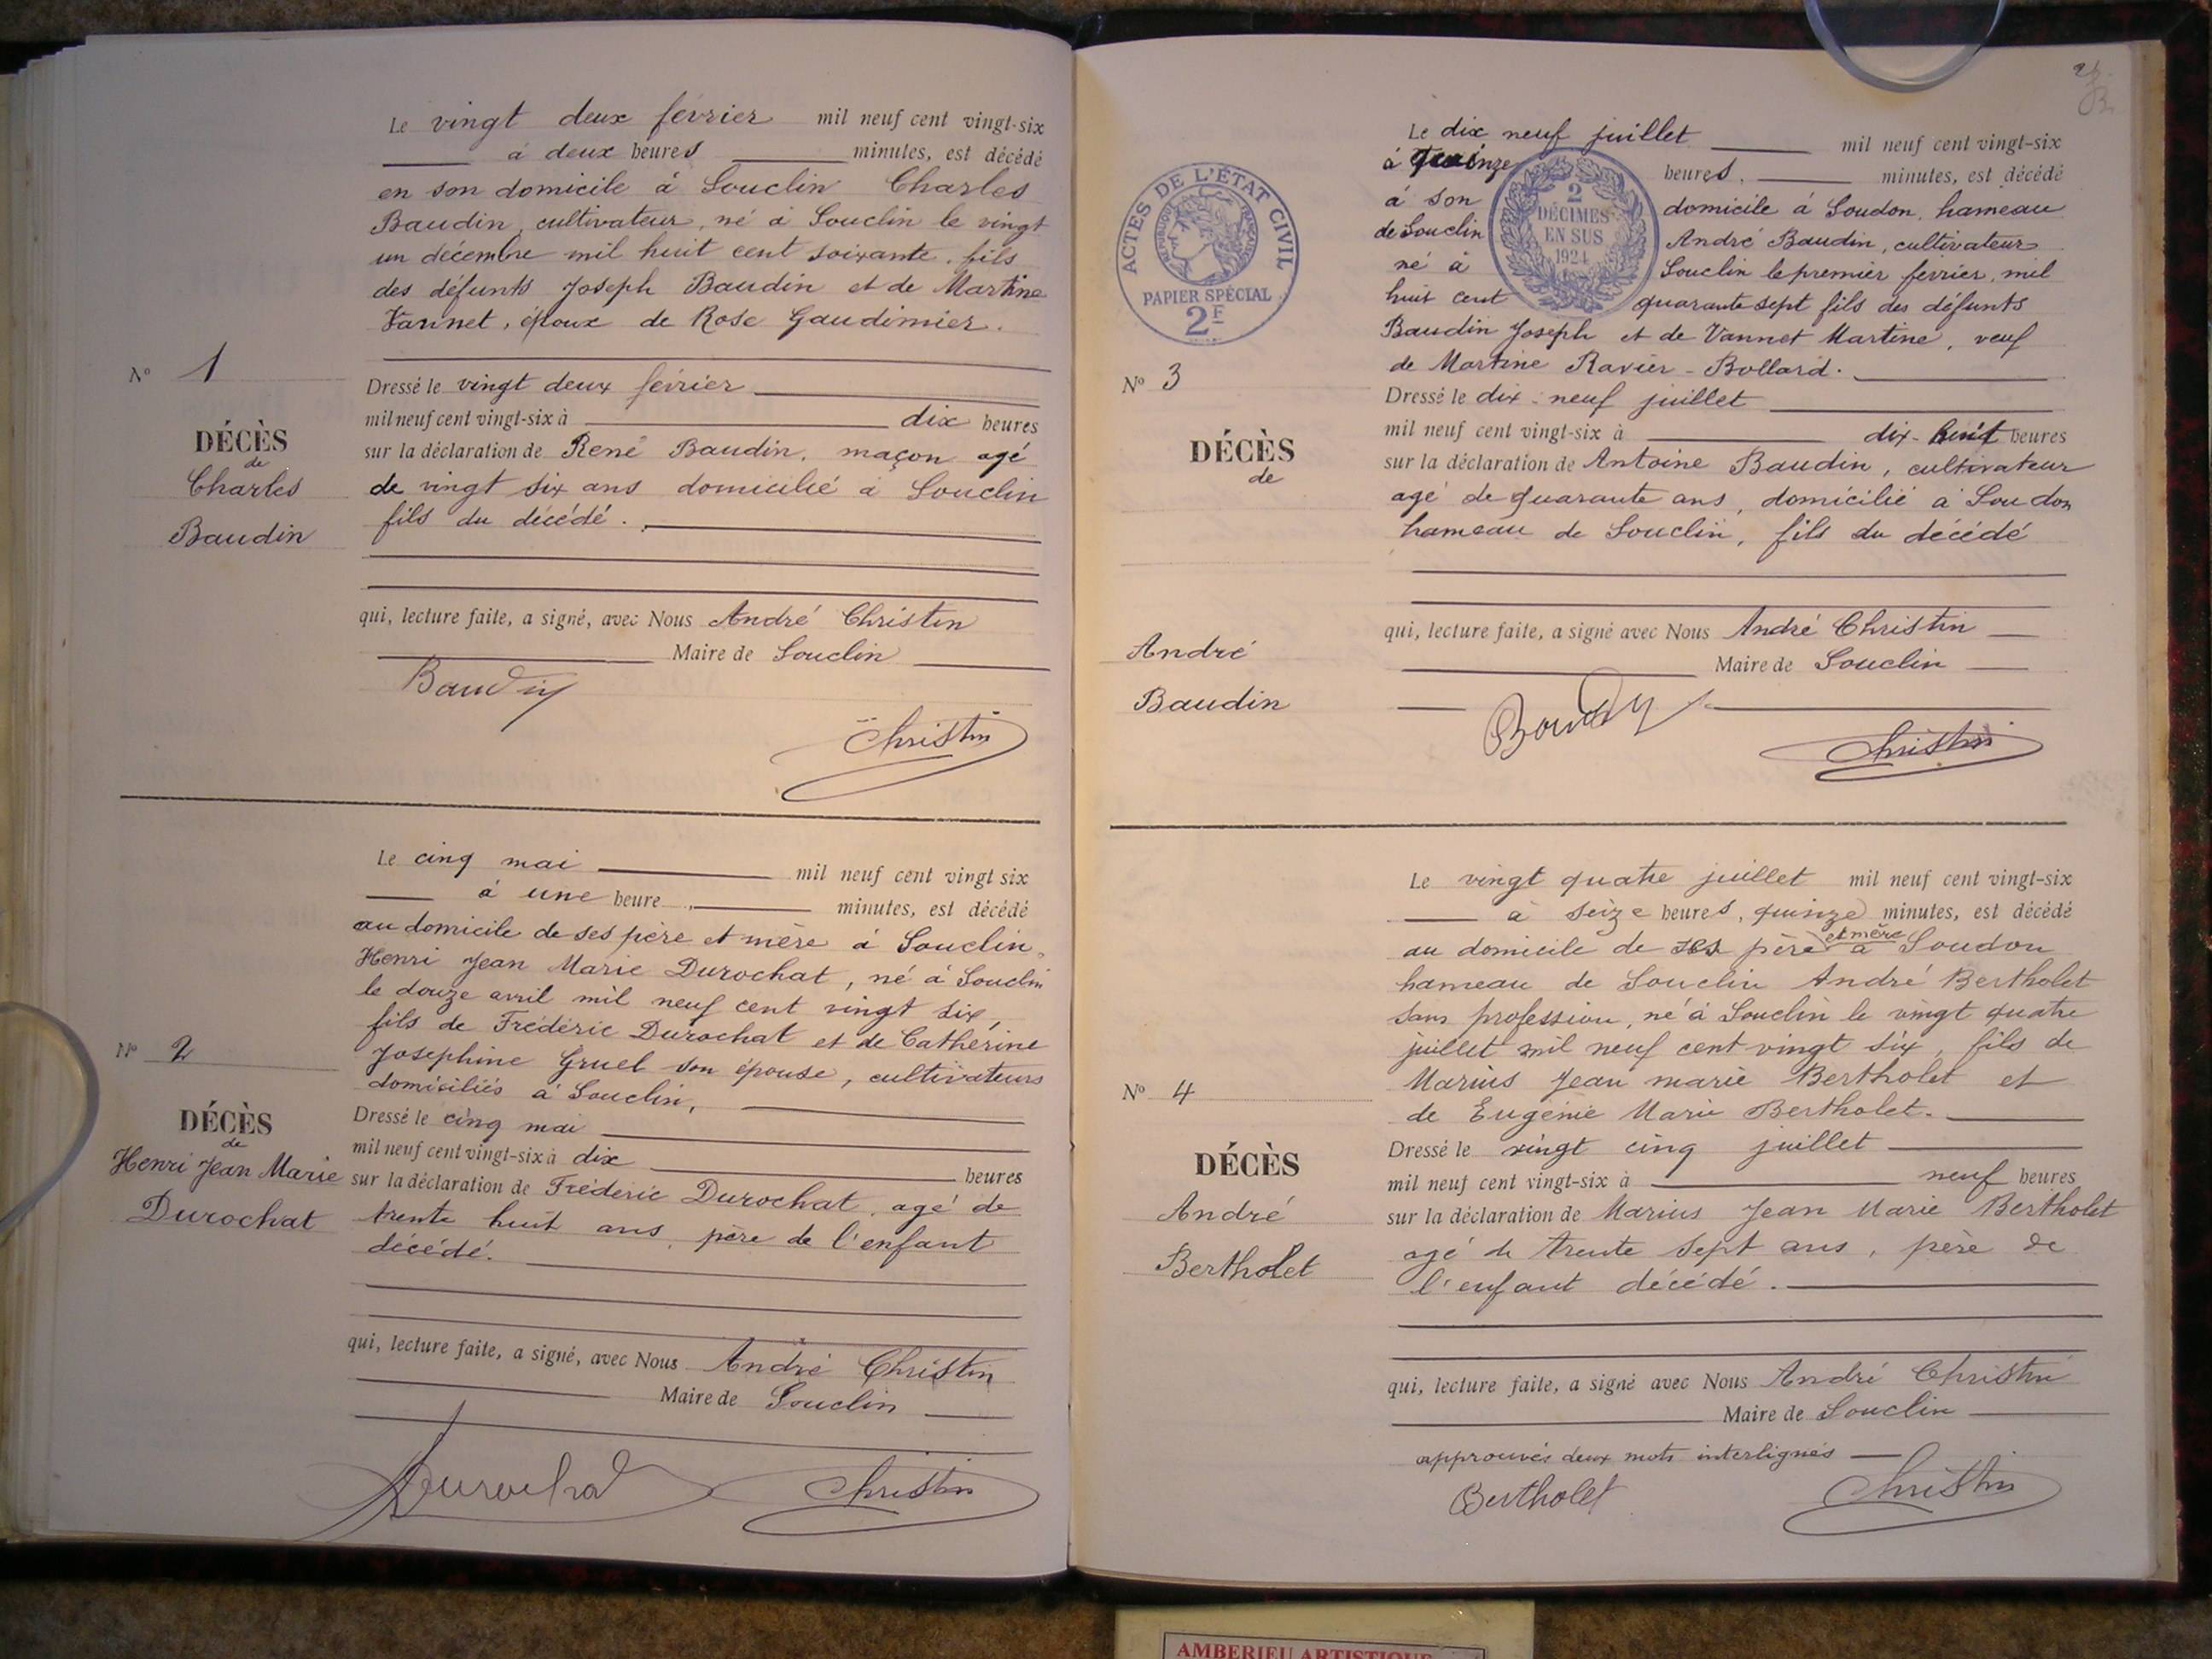 Le vingt deux février mil neuf cent vingt-six
à deux heures minutes, est décédé
en son domicile à Souclin Charles
Baudin, cultivateur, né à Souclin le vingt
un décembre mil huit cent soixante, fils
des défunts Joseph Baudin et de Martine
Vannet, époux de Rose Gaudimier.
N° 1
Dressé le vingt deux février
mil neuf cent vingt-six à dix heures
DÉCÈS
de
Charles
Baudin
sur la déclaration de René Baudin, maçon agé
de vingt six ans domicilié à Souclin
fils du décédé.
qui, lecture faite, a signé, avec Nous André Christin
Maire de Souclin
Baudin
Christin
Le cinq mai mil neuf cent vingt six
à une heure minutes, est décédé
au domicile de ses père et mère à Souclin,
Henri Jean Marie Durochat, né à Souclin
le douze avril mil neuf cent vingt six,
fils de Frédéric Durochat et de Catherine
Josephine Gruel son épouse, cultivateurs
domiciliés à Souclin,
N° 2
DÉCÈS
de
Henri Jean Marie
Durochat
Dressé le cinq mai
mil neuf cent vingt-six à dix heures
sur la déclaration de Frédéric Durochat, agé de
trente huit ans, père de l'enfant
décédé.
qui, lecture faite, a signé, avec Nous André Christin
Maire de Souclin
Durochat
Christin
ACTES DE L'ÉTAT CIVIL
RÉPUBLIQUE FRANÇAISE
PAPIER SPÉCIAL
2F
2
DÉCIMES
EN SUS
1924
Le dix neuf juillet mil neuf cent vingt-six
à quinze heures, minutes, est décédé
à son domicile à Soudon, hameau
de Souclin André Baudin, cultivateur
né à Souclin le premier février, mil
huit cent quarante sept fils des défunts
Baudin Joseph et de Vannet Martine, veuf
de Martine Ravier-Bollard.
N° 3
DÉCÈS
de
André
Baudin
Dressé le dix-neuf juillet
mil neuf cent vingt-six à dix-huit heures
sur la déclaration de Antoine Baudin, cultivateur
agé de quarante ans, domicilié à Soudon
hameau de Souclin, fils du décédé
qui, lecture faite, a signé avec Nous André Christin
Maire de Souclin
Baudin
Christin
Le vingt quatre juillet mil neuf cent vingt-six
à seize heures, quinze minutes, est décédé
au domicile de ses père et mère à Soudon
hameau de Souclin André Bertholet
sans profession, né à Souclin le vingt quatre
juillet mil neuf cent vingt six, fils de
Marius Jean marie Bertholet et
de Eugénie Marie Bertholet.
N° 4
DÉCÈS
André
Bertholet
Dressé le vingt cinq juillet
mil neuf cent vingt-six à neuf heures
sur la déclaration de Marius Jean Marie Bertholet
agé de trente sept ans, père de
l'enfant décédé.
qui, lecture faite, a signé avec Nous André Christin
Maire de Souclin
approuvés deux mots interlignés
Bertholet
Christin
AMBERIEU ARTISTIQUE